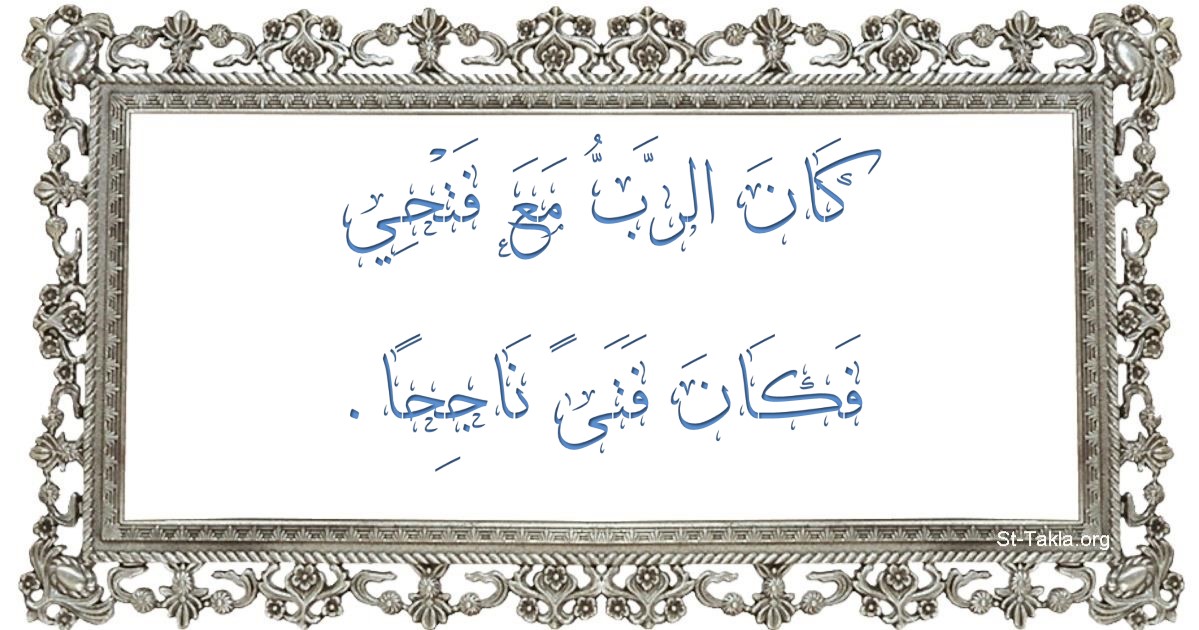 كَانَ الرَّبُّ مَعَ فَتْحِي
فَكَانَ فَتَىً نَاجِحًا .
St-Takla.org